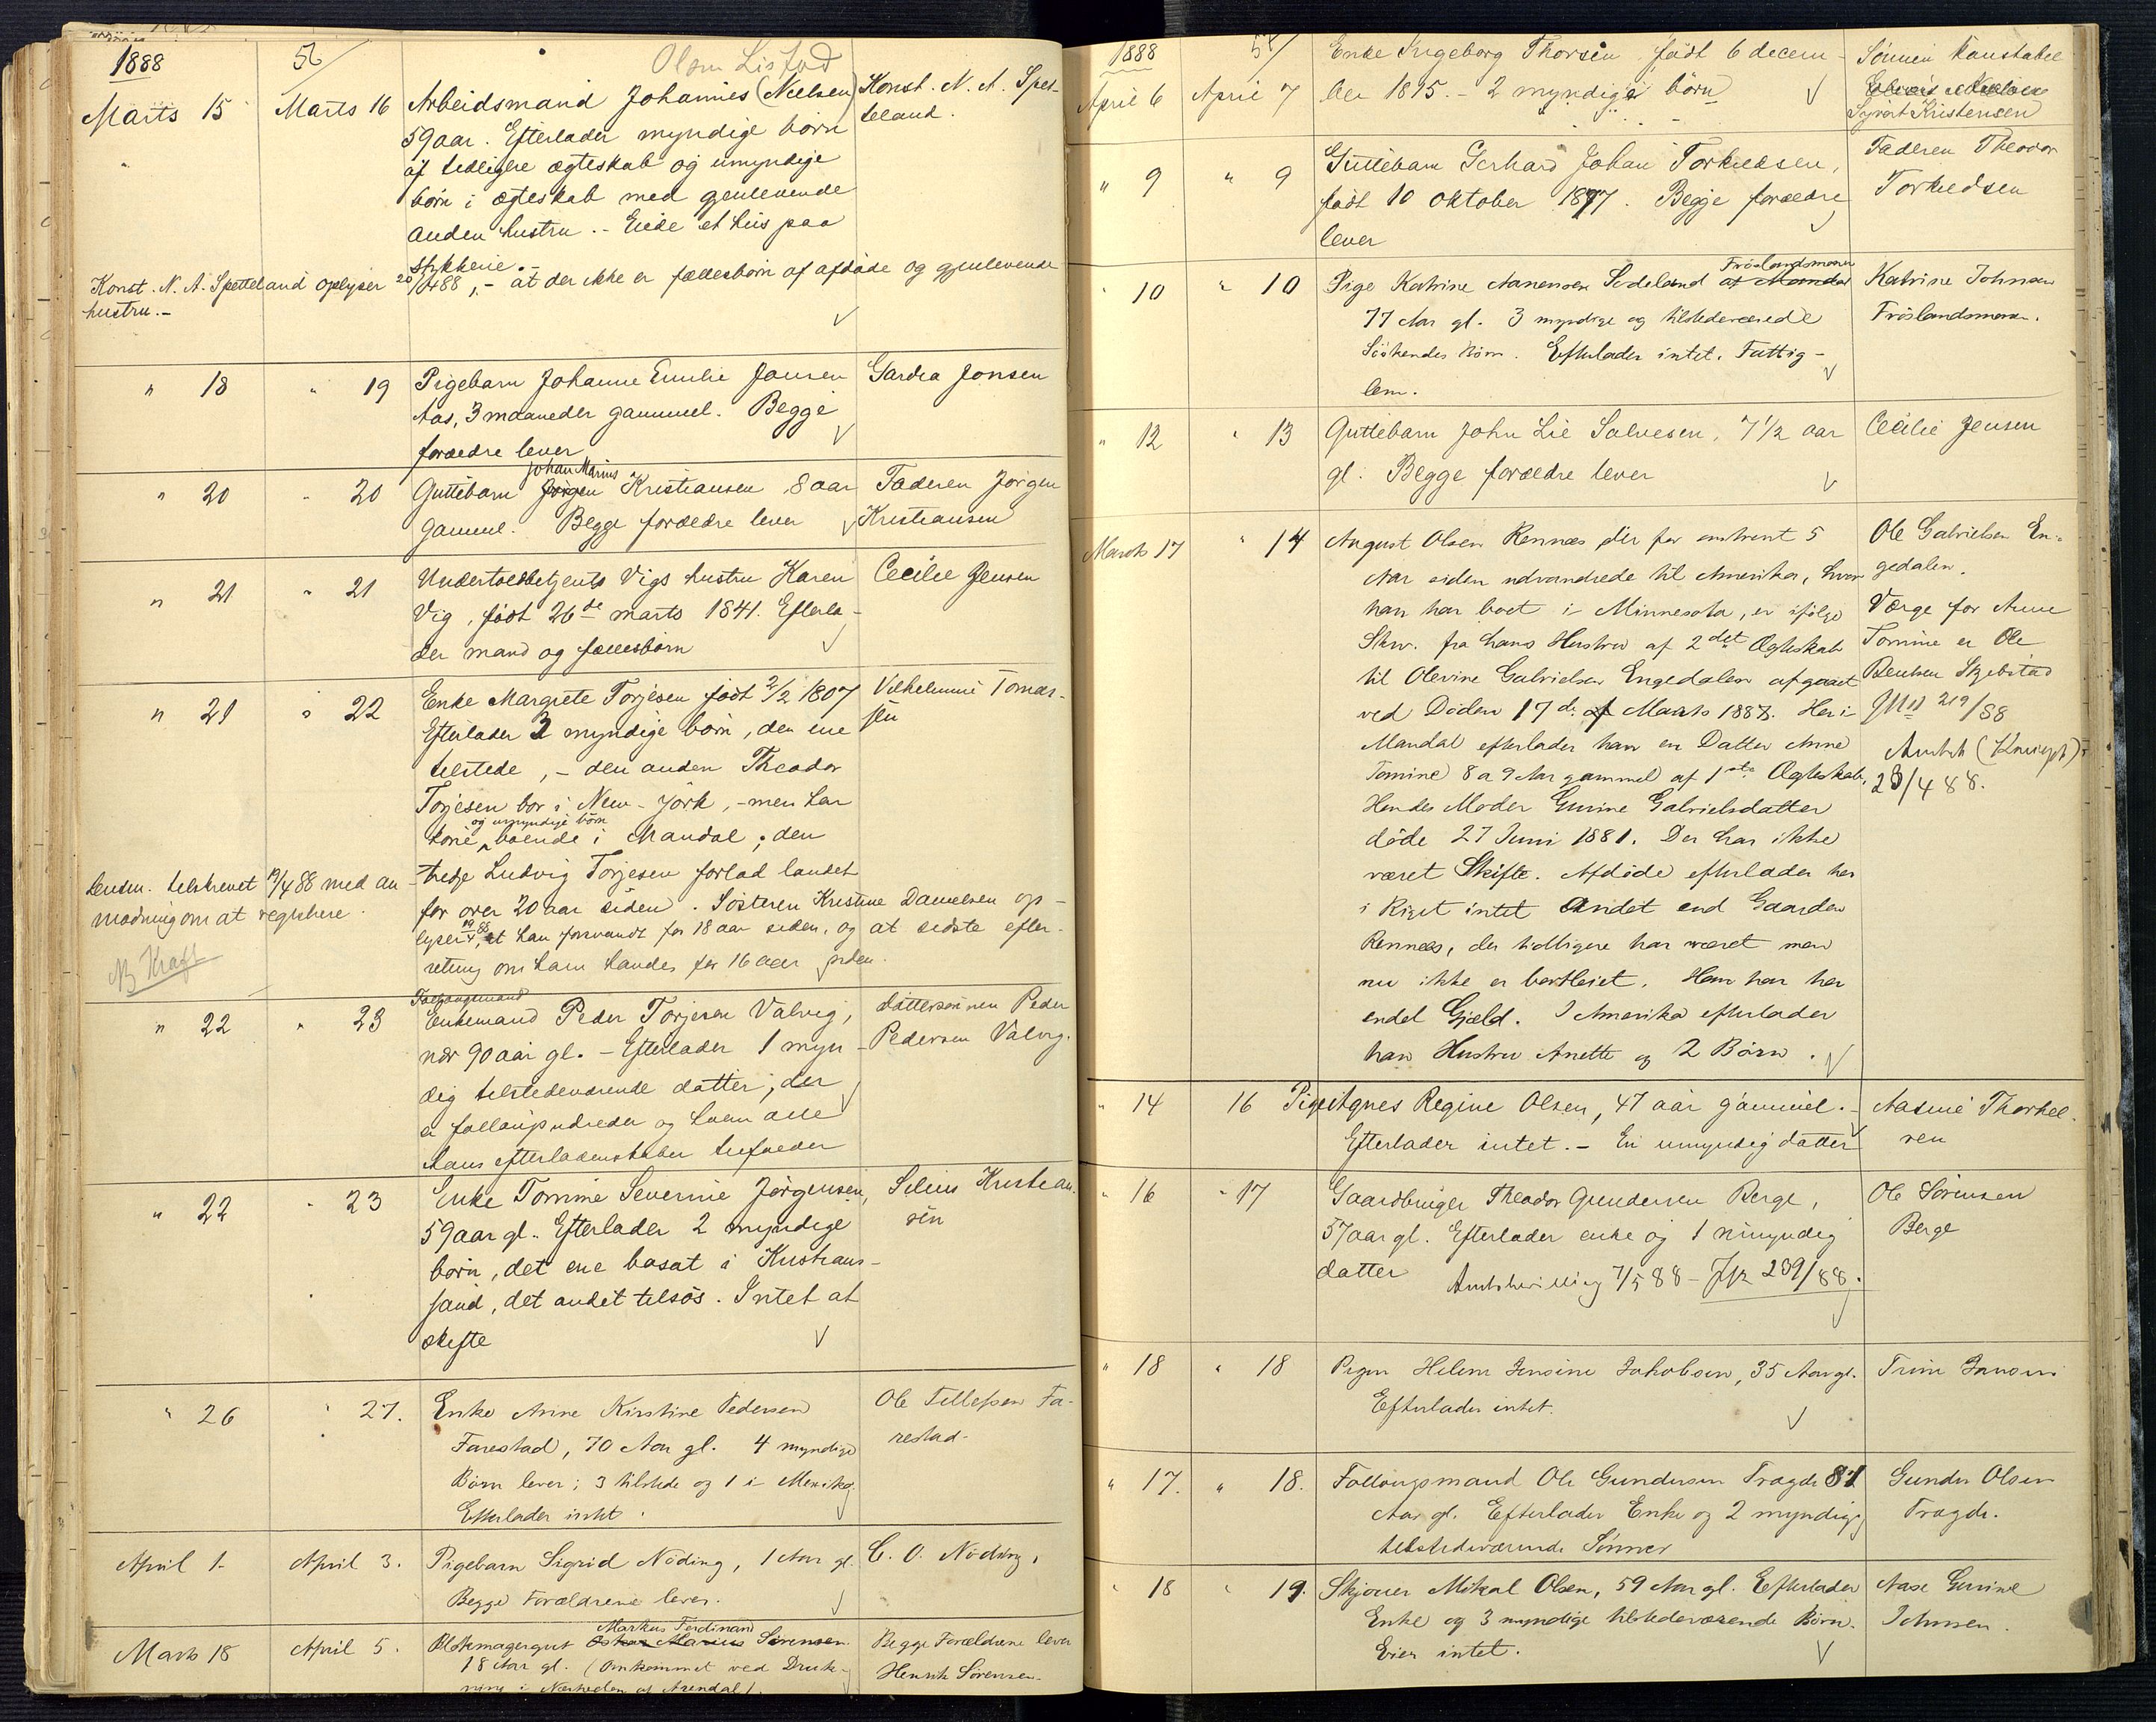 1888
56/
Olsen Listad
Marts 15 Marts 16 Arbeidsmand Johannes (Nielsen) Konst. N. A. Spet-
59 aar. Efterlader myndige børn teland.
af tidligere ægteskab og umyndige
børn i ægteskab med gjenlevende
anden hustru. - Eiede et hus paa
Konst. N. A. Spetteland oplyser 20/4 88, - at der ikke er fællesbørn af afdøde og gjenlevende
hustru. -
" 18 " 19 Pigebarn Johanne Emilie Jonsen Jonsen
Aas, 3 maaneder gammel. Begge
forældre lever
Johan Marius
" 20 " 20 Guttebarn Jørgen Kristiansen 8 aar Faderen Jørgen
gammel. Begge forældre lever Kristiansen
" 21 " 21 Undertoldbetjents Vigs hustru Karen Cecilie Jensen
Vig, født 26de marts 1841. Efterla-
der mand og fællesbørn
" 21 " 22 Enke Margrete Torjesen født 2/2 1807 Vilhelmine Tomas-
Efterlader 3 myndige børn, den ene sen
tilstede, - den anden Theodor
Torjesen bor i New-York, - men har
og umyndige børn
kone boende i Mandal; den
tredje Ludvig Torjesen forlod landet
Lensm. tilskrevet 19/4 88 med an-
modning om at registrere.
for over 20 aar siden. Søsteren Kristine Danielsen op-
lyser 19/4 88, at han forsvandt for 18 aar siden, og at sidste efter-
retning om ham handes for 16 aar siden.
NB Kraft
Follaugsmand
" 22 " 23 Enkemand Peder Torjesen Valvig, Dattersønnen Peder
nær 90 aar gl. - Efterlader 1 myn- Pedersen Valvig.
dig tilstedeværende datter, der
er follaugsudreder og hvem alle
hans efterladenskaber tilfalder
" 22 " 23 Enke Tomine Severine Jørgensen, Kristian-
59 aar gl. Efterlader 2 myndige sen
børn, det ene bosat i Kristians-
sand, det andet tilsøs. Intet at
skifte
" 26 " 27. Enke Anne Kirstine Pedersen Ole Tellefsen Fa-
Farestad, 70 Aar gl. 4 myndige restad.
Børn lever; 3 tilstede og 1 i
Efterlader intet.
April 1. April 3. Pigebarn Sigrid Nöding, 1 Aar gl. C. O. Nöding,
Begge Forældrene lever.
Markus Ferdinand
Marts 18 April 5. Blokmagergut Oskar Marius Sørensen. Begge Forældrene lever
18 Aar gl. (Omkommet ved Druk- Henrik Sørensen.
ning i Nærheden af Arendal).
1888
57/
April 6 April 7 Enke Ingeborg Thorsen født 6 decem- Sønnen konstabel
ber 1895. - 2 myndige børn
Syvert Kristensen
" 9 " 9 Guttebarn Gerhard Johan Torkildsen, Faderen Theodor
født 10 oktober 1877. Begge forældre Torkildsen
lever
Frøslandsmoen
" 10 " 10 Pige Katrine Aanensen Sodeland af Mandal Katrine Johnsen
77 Aar gl. 3 myndige og tilstedeværende Frøslandsmoen.
Søskendes Børn. Efterlader intet. Fattig-
lem.
" 12 " 13 Guttebarn John Lie Salvesen, 7 1/2 aar Cecilie Jensen
gl. Begge forældre lever
Marts 17 " 14 August Olsen Rennæs der for omtrent 5 Ole Gabrielsen En-
Aar siden udvandrede til Amerika, hvor gedalen.
han har boet i Minnesota, er ifølge Værge for Anne
Skr. fra hans Hustru af 2det Ægteskab Tomine er Ole
til Olevine Gabrielsen Engedalen afgaaet Bentsen Skjebstad
ved Døden 17de Marts 1888. Her i 219/88
Mandal efterlader han en Datter Anne
Tomine 8 a 9 Aar gammel af 1ste Ægteskab, 23/4 88.
Hendes Moder Gurine Gabrielsdatter
døde 27 Juni 1881. Der har ikke
været Skifte. Afdøde efterlader her
i Riget intet Andet end Gaarden
Rennæs, der tidligere har været men
nu ikke er bortleiet. Han har her
endel Gjæld. I Amerika efterlader
han Hustru Anette og 2 Børn.
" 14 16 Pige Agnes Regine Olsen, 47 aar gammel. - Aasine Thorkel-
Efterlader intet. - En umyndig datter sen
" 16 " 17 Gaardbruger Theodor Gundersen Berge, Ole Sørensen
57 aar gl. Efterlader enke og 1 umyndig Berge
datter Amtsbevilling 7/5 88 - 239/88.
" 18 " 18 Pigen Helene Jensine Jakobsen, 35 Aar gl. Trine Jansen
Efterlader intet.
" 17. " 18. Follaugsmand Ole Gundersen Tregde 81 Gunder Olsen
Aar gl. Efterlader Enke og 2 myndige Tregde.
tilstedeværende Sønner
" 18 " 19. Skjøner Mikal Olsen, 59 Aar gl. Efterlader Aase Gurine
Enke og 3 myndige tilstedeværende Børn. Johnsen.
Eier intet.